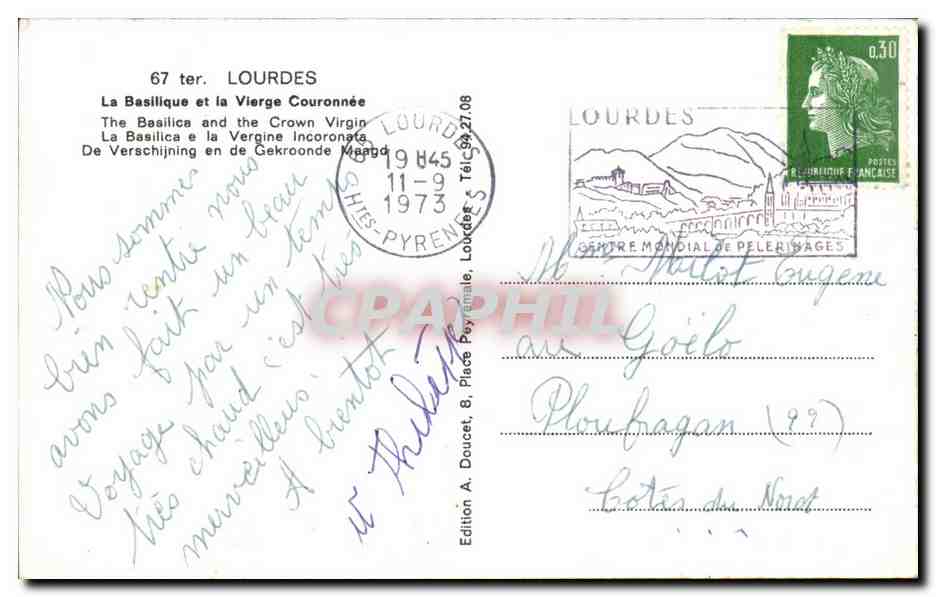 67 ter. LOURDES
La Basilique et la Vierge Couronnée
The Basilica and the Crown Virgin
La Basilica e la Vergine Incoronata
De Verschijning en de Gekroonde Maagd
Nous sommes
bien rentré nous
avons fait un beau
Voyage par un temps
très chaud c'est très
merveilleus.
A bientot
Edition A. Doucet, 8, Place Peyramale, Lourdes - Tél. 94.27.08
65 LOURDES
19H45
11-9
1973
HTES-PYRENEES
LOURDES
CENTRE MONDIAL DE PELERINAGES
0,30
POSTES
REPUBLIQUE FRANÇAISE
Mme Eugene
au Goëlo
Ploufragan (99)
Côtes du Nord
CPAPHIL